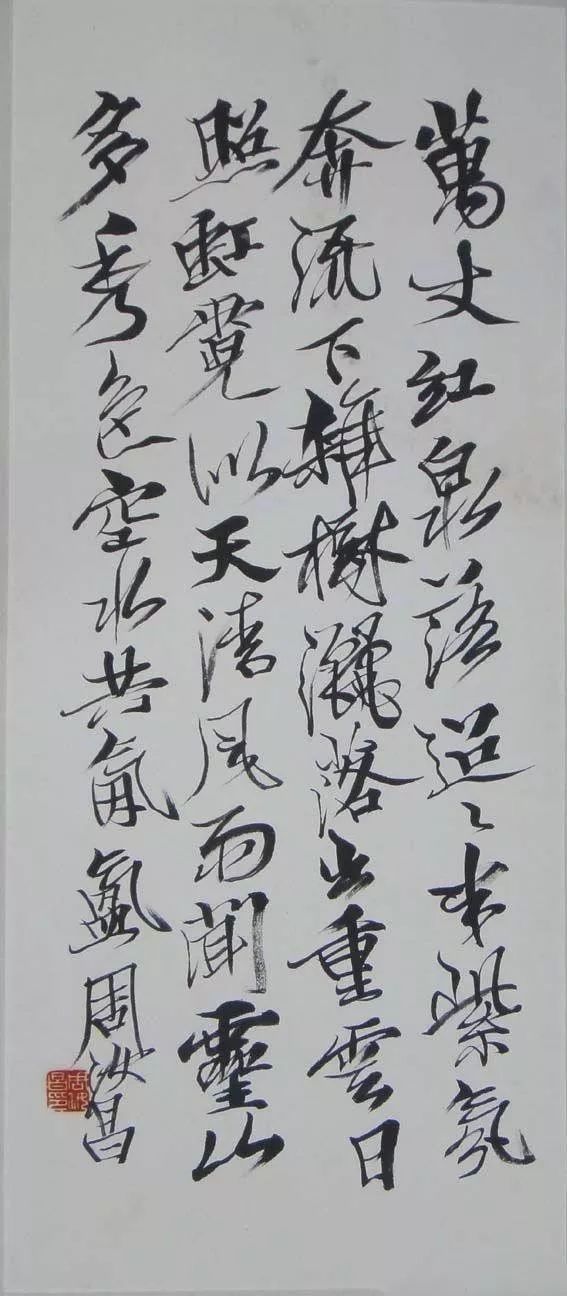 萬丈紅泉落迢々半紫氛
奔流下雜樹灑落出重雲日
照虹霓似天清風雨聞靈山
多秀色空水共氤氳周汝昌